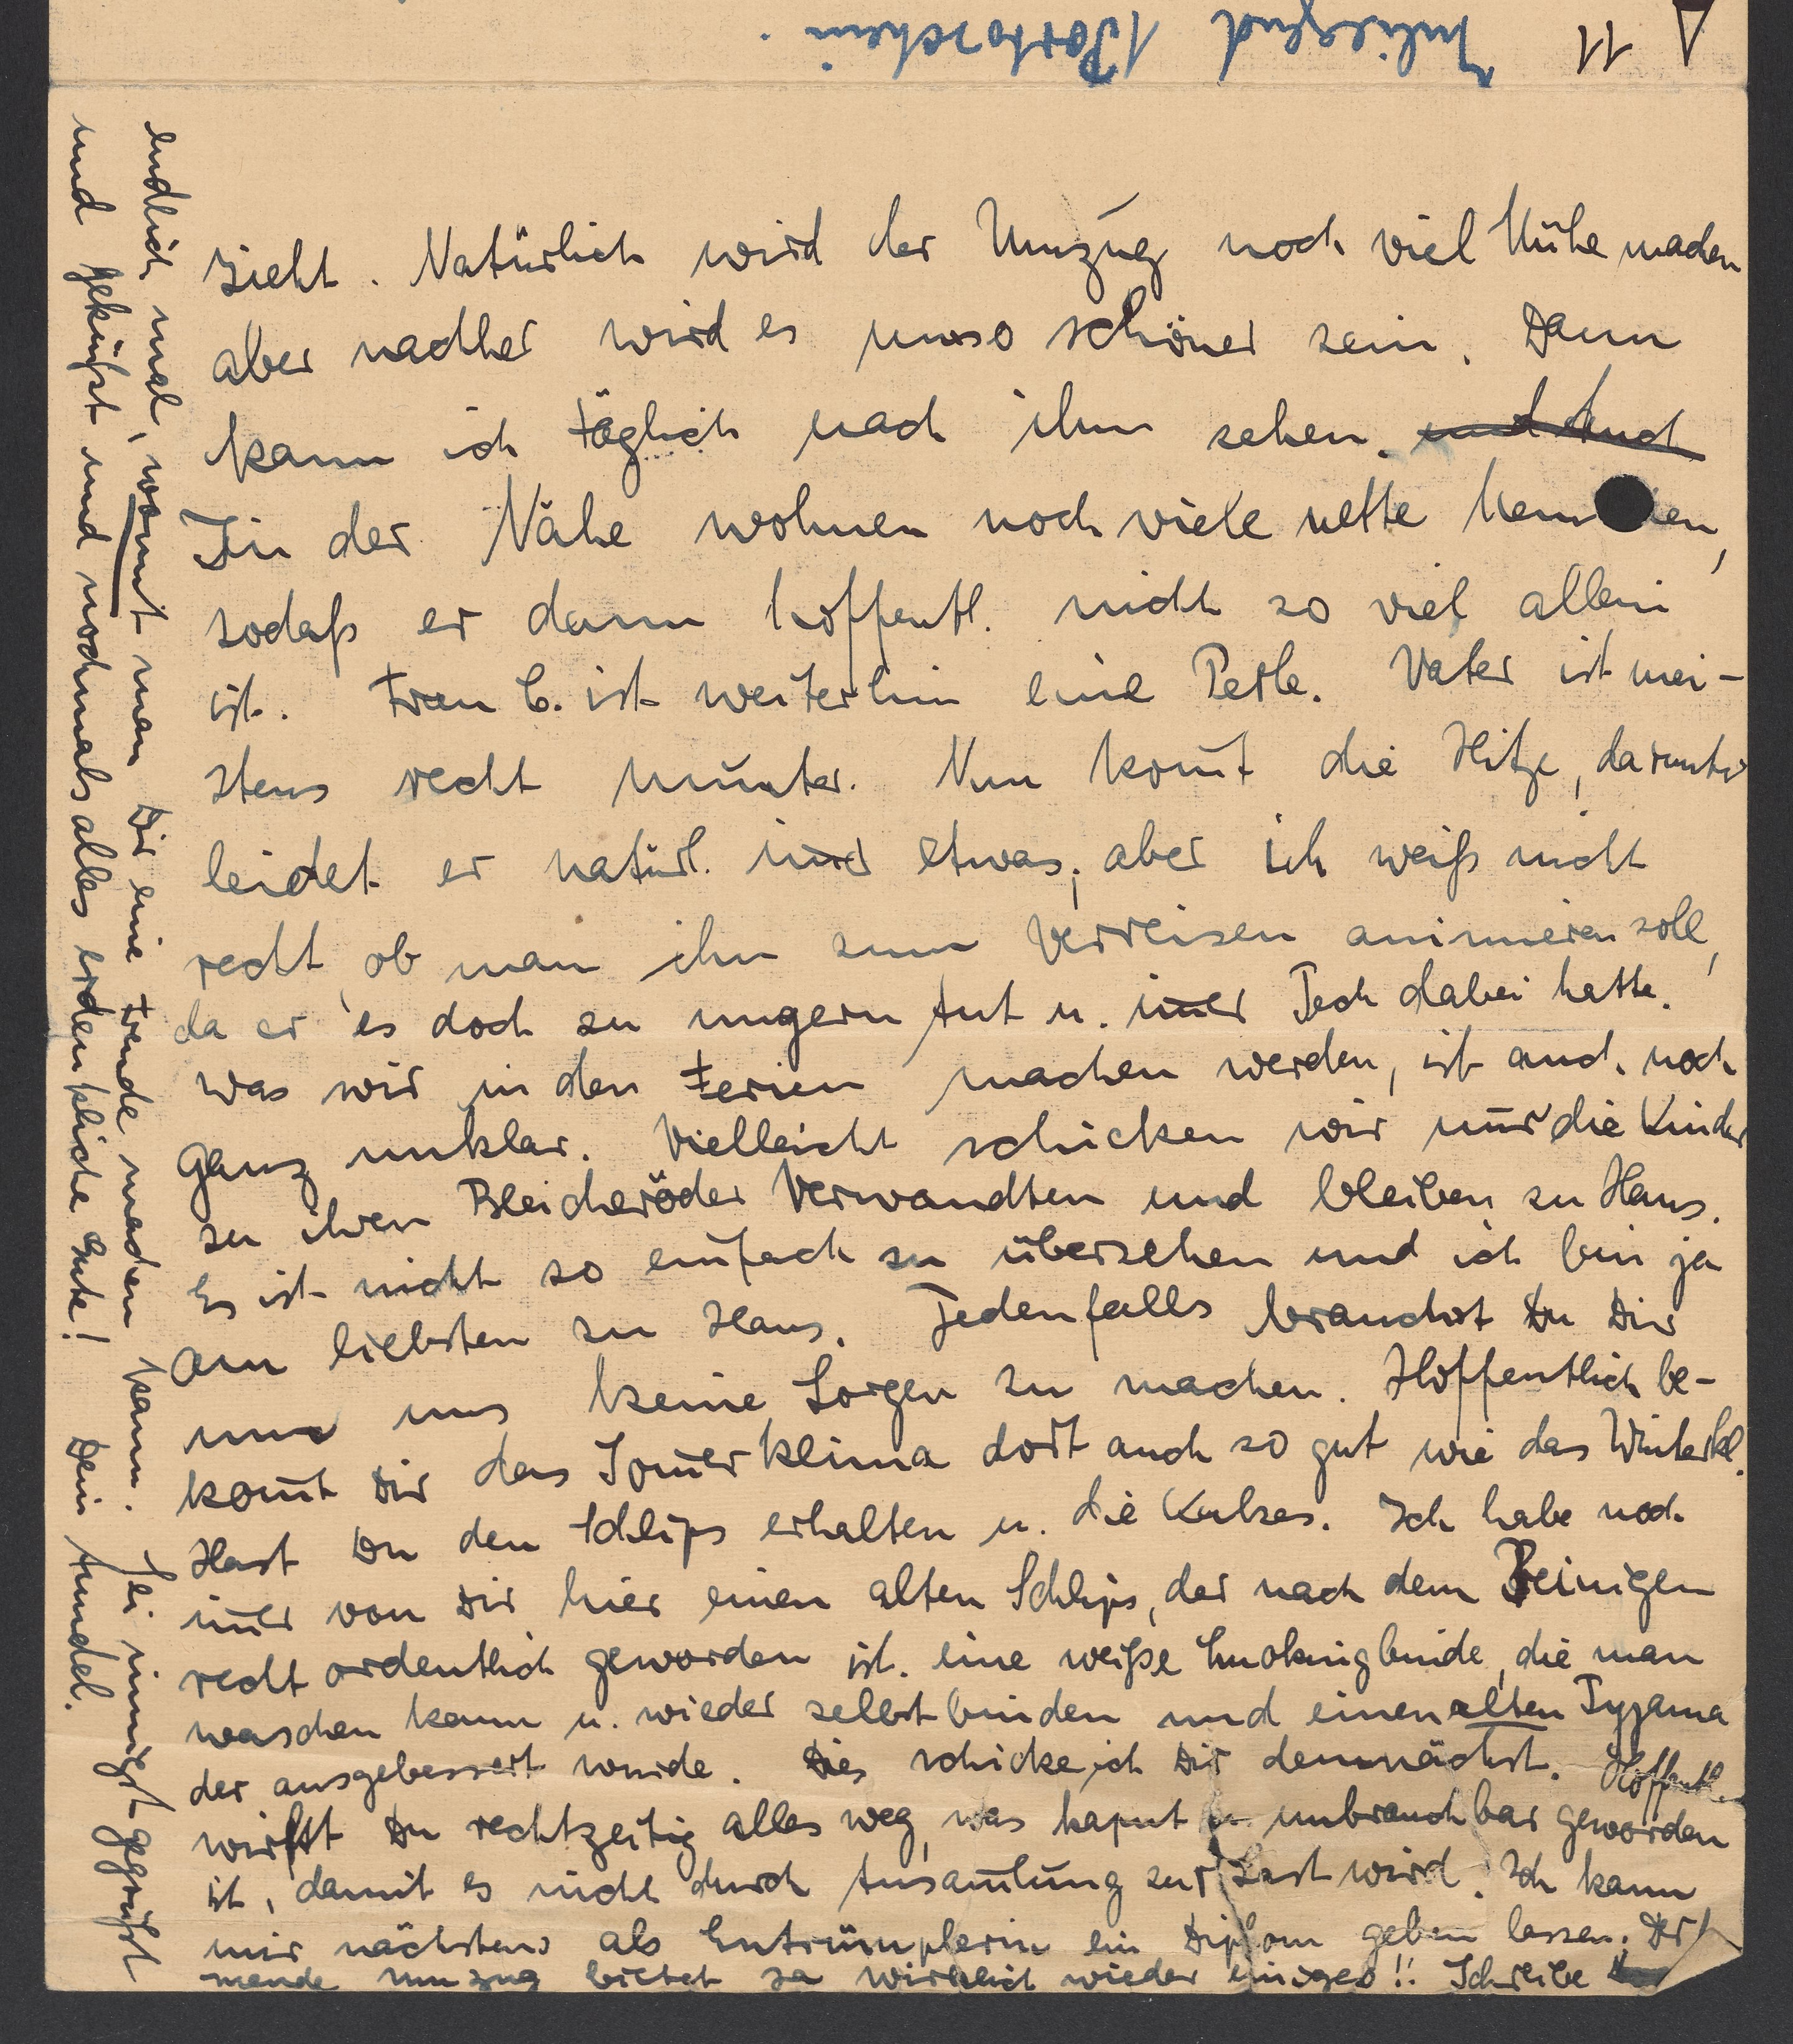 11
Inliegend 1 Portoschein.
zieht. Natürlich wird der Umzug noch viel Mühe machen
aber nachher wird es umso schöner sein. Dann
kann ich täglich nach ihm sehen. und auch
In der Nähe wohnen noch viele nette Men en,
sodaß er dann hoffentl. nicht so viel allein
ist. Frau C. ist weiterhin eine Perle. Vater ist mei-
stens recht munter. Nun kom̄t die Hitze, darunter
leidet er natürl. im̄er etwas, aber ich weiß nicht
recht, ob man ihn zum Verreisen animieren soll,
da er es doch zu ungern tut u. im̄er Pech dabei hatte.
Was wir in den Ferien machen werden, ist auch noch
ganz unklar. Vielleicht schicken wir nur die Kinder
zu ihren Bleicheröder Verwandten und bleiben zu Haus.
Es ist nicht so einfach zu übersehen und ich bin ja
am liebsten zu Haus. Jedenfalls brauchst Du Dir
um uns keine Sorgen zu machen. Hoffentlich be-
kom̄t Dir das Som̄erklima dort auch so gut wie das Winterkl.
Hast Du den Schlips erhalten u. die Kalzes. Ich habe noch
im̄er von Dir hier einen alten Schlips, der nach dem Reinigen
recht ordentlich geworden ist. eine weiße Smokingbinde, die man
waschen kann u. wieder selbst binden und einen alten Pyjama
der ausgebessert wurde. Dies schicke ich Dir demnächst. Hoffentl.
wirfst Du rechtzeitig alles weg, was kaput u. unbrauchbar geworden
ist, damit es nicht durch Ansam̄lung zur Last wird. Ich kann
mir nächstens als Entrümplerin ein Diplom geben lassen. Der
mende Umzug bietet ja wirklich wieder einiges!! Schreibe
endlich mal, womit man Dir eine Freude machen kann. Sei innigst gegrüßt
und geküßt und nochmals alles erdenkliche Gute! Dein Mundel.